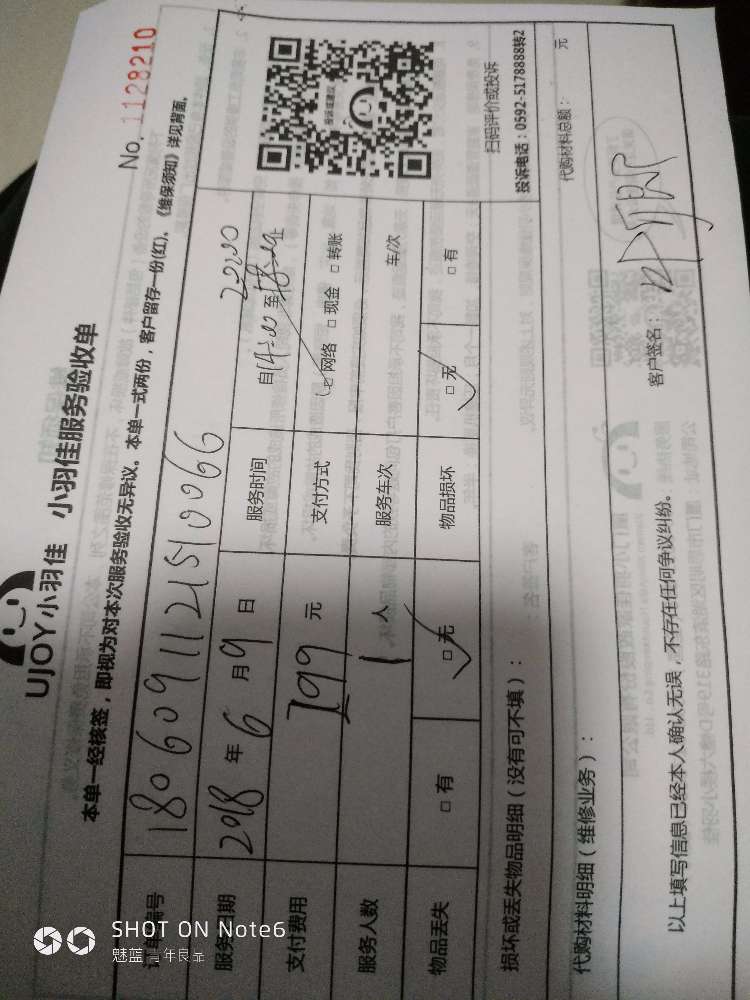 UJOY小羽佳 小羽佳服务验收单
No. 1128210
本单一经核签，即视为对本次服务验收无异议。本单一式两份，客户留存一份(红)、《维保须知》详见背面。
订单编号 1806091121510066
服务日期 2018年6月9日 服务时间 自14:00至 止
支付费用 199元 支付方式 □网络 □现金 □转账
服务人数 1人 服务车次 车/次
物品丢失 □有 □无 物品损坏 □无 □有
投诉或建议
扫码评价或投诉
投诉电话：0592-5178888转2
损坏或丢失物品明细（没有可不填）：
代购材料明细（维修业务）： 代购材料总额： 元
以上填写信息已经本人确认无误，不存在任何争议纠纷。 客户签名：
SHOT ON Note6
魅蓝 青年良品